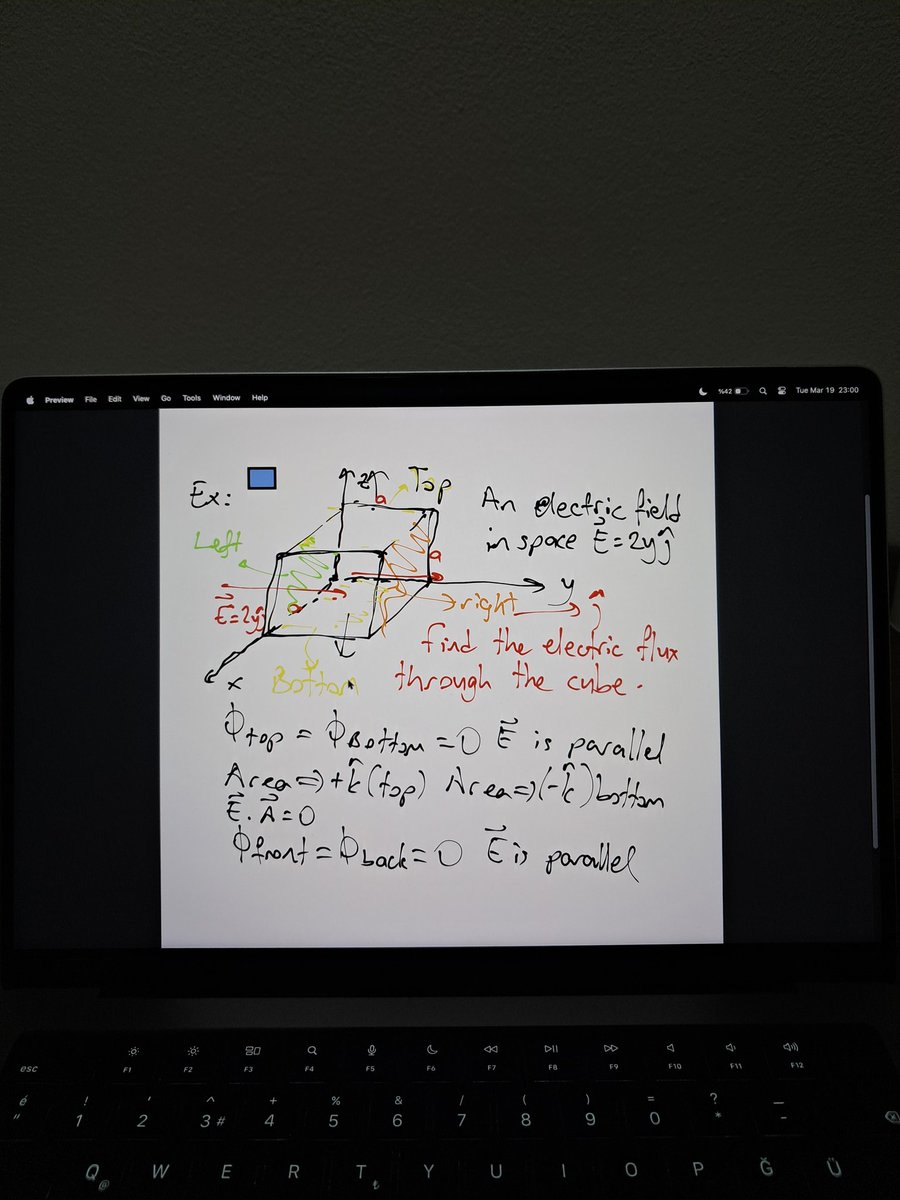 Preview File Edit View Go Tools Window Help %42 Tue Mar 19 23:00
Ex:
z
Top
a
An electric field
in space E⃗=2yĵ
Left
a
a
y
E⃗=2yĵ
right ĵ
find the electric flux
x
Bottom
through the cube.
Φtop = ΦBottom = 0 E⃗ is parallel
Area => +k̂ (top) Area => (-k̂) bottom
E⃗ . A⃗ = 0
Φfront = Φback = 0 E⃗ is parallel
esc F1 F2 F3 F4 F5 F6 F7 F8 F9 F10 F11 F12
é ! ' ^ + % & / ( ) = ? _
" 1 2 3 # 4 5 6 7 8 9 0 * -
Q @ W E R T ₺ Y U I O P Ğ Ü